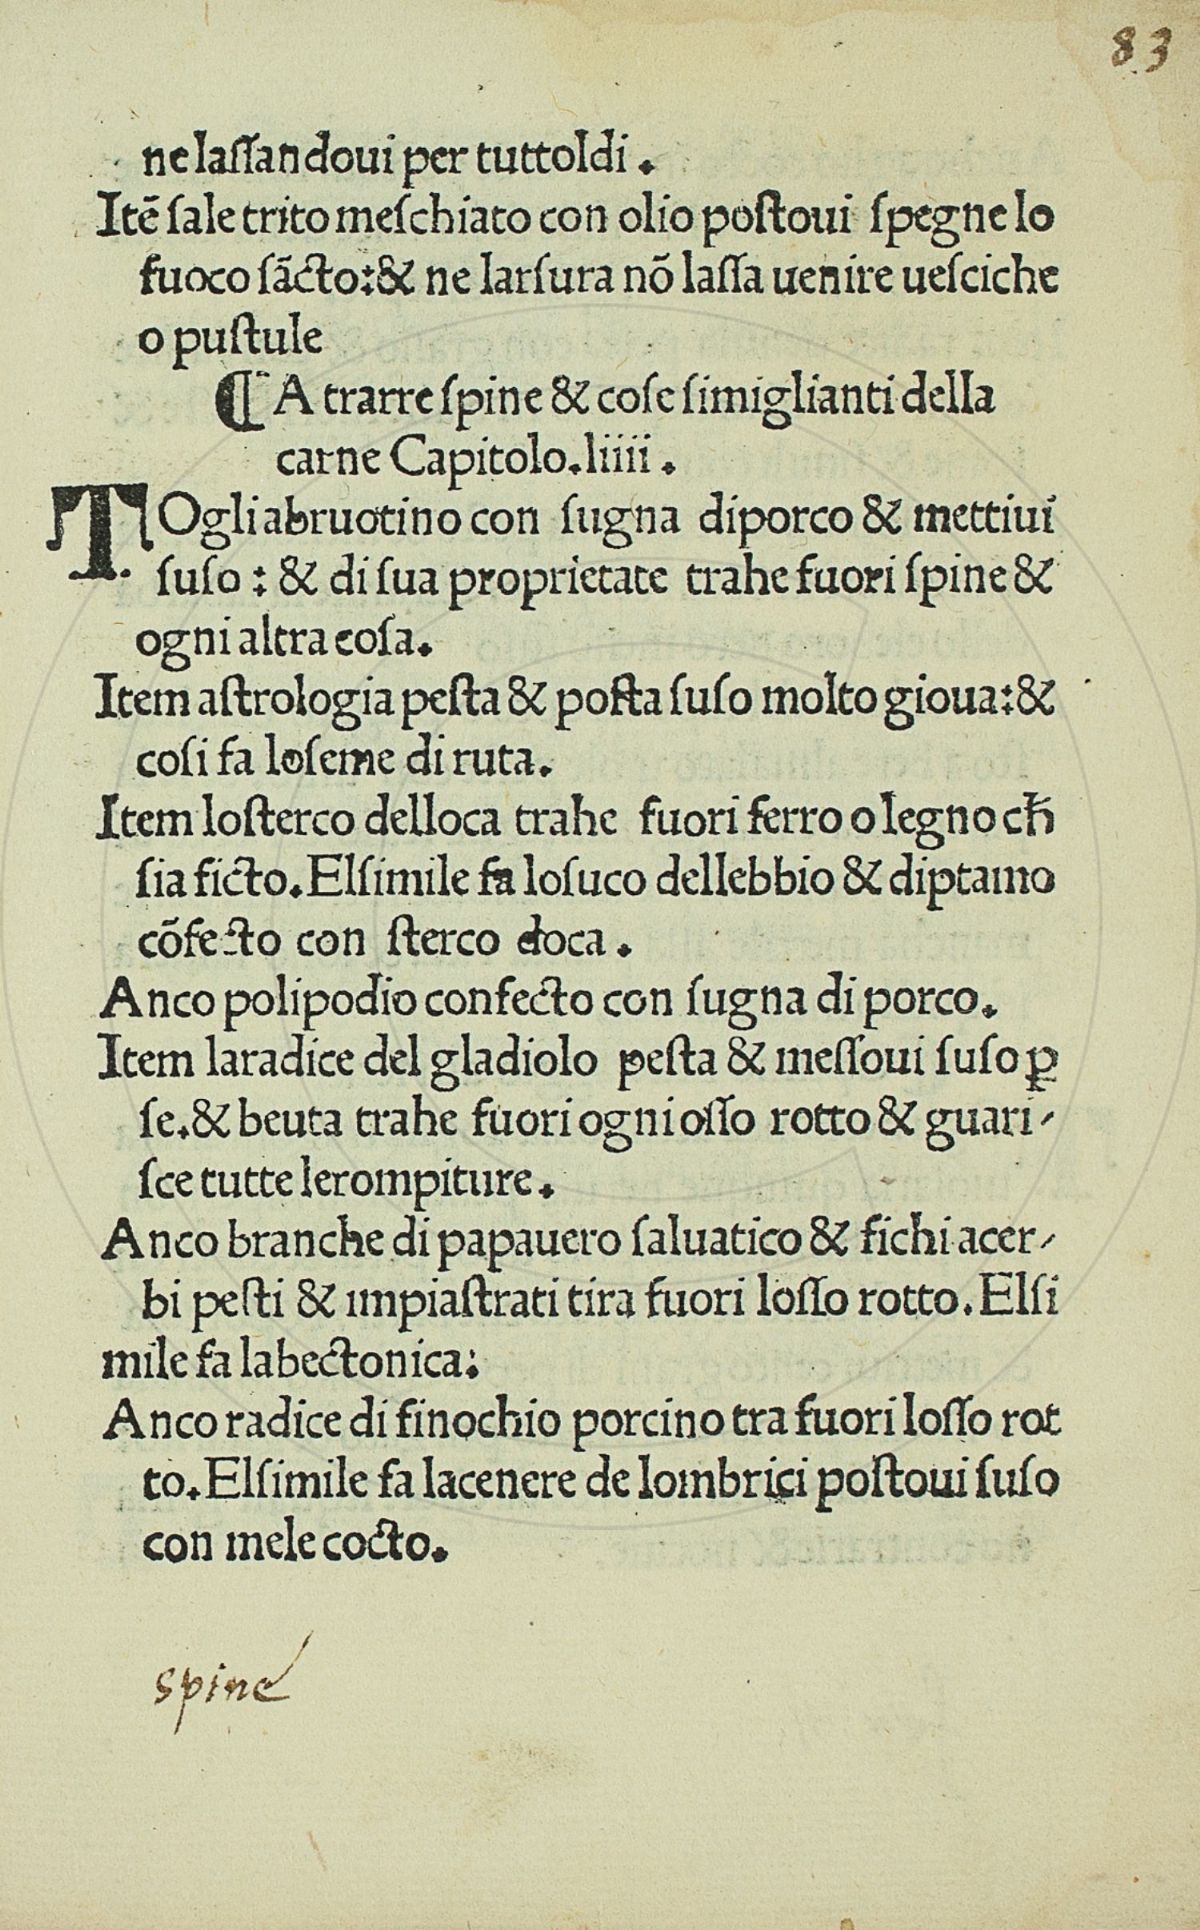 83
ne lassandoui per tuttoldi.
Itē sale trito meschiato con olio postoui spegne lo
fuoco sācto:& ne larsura nō lassa uenire uesciche
o pustule
¶ A trarre spine & cose simiglianti della
carne Capitolo.liiii.
TOgli abruotino con sugna diporco & mettiui
suso : & di sua proprietate trahe fuori spine &
ogni altra cosa.
Item astrologia pesta & posta suso molto gioua:&
cosi fa loseme di ruta.
Item losterco delloca trahe fuori ferro o legno cħ
sia ficto. Elsimile fa losuco dellebbio & diptamo
cōfecto con sterco doca.
Anco polipodio confecto con sugna di porco.
Item laradice del gladiolo pesta & messoui suso ꝑ
se.& beuta trahe fuori ogni osso rotto & guari-
sce tutte lerompiture.
Anco branche di papauero saluatico & fichi acer-
bi pesti & impiastrati tira fuori losso rotto. Elsi
mile fa labectonica:
Anco radice di finochio porcino tra fuori losso rot
to. Elsimile fa lacenere de lombrici postoui suso
con mele cocto.
spine